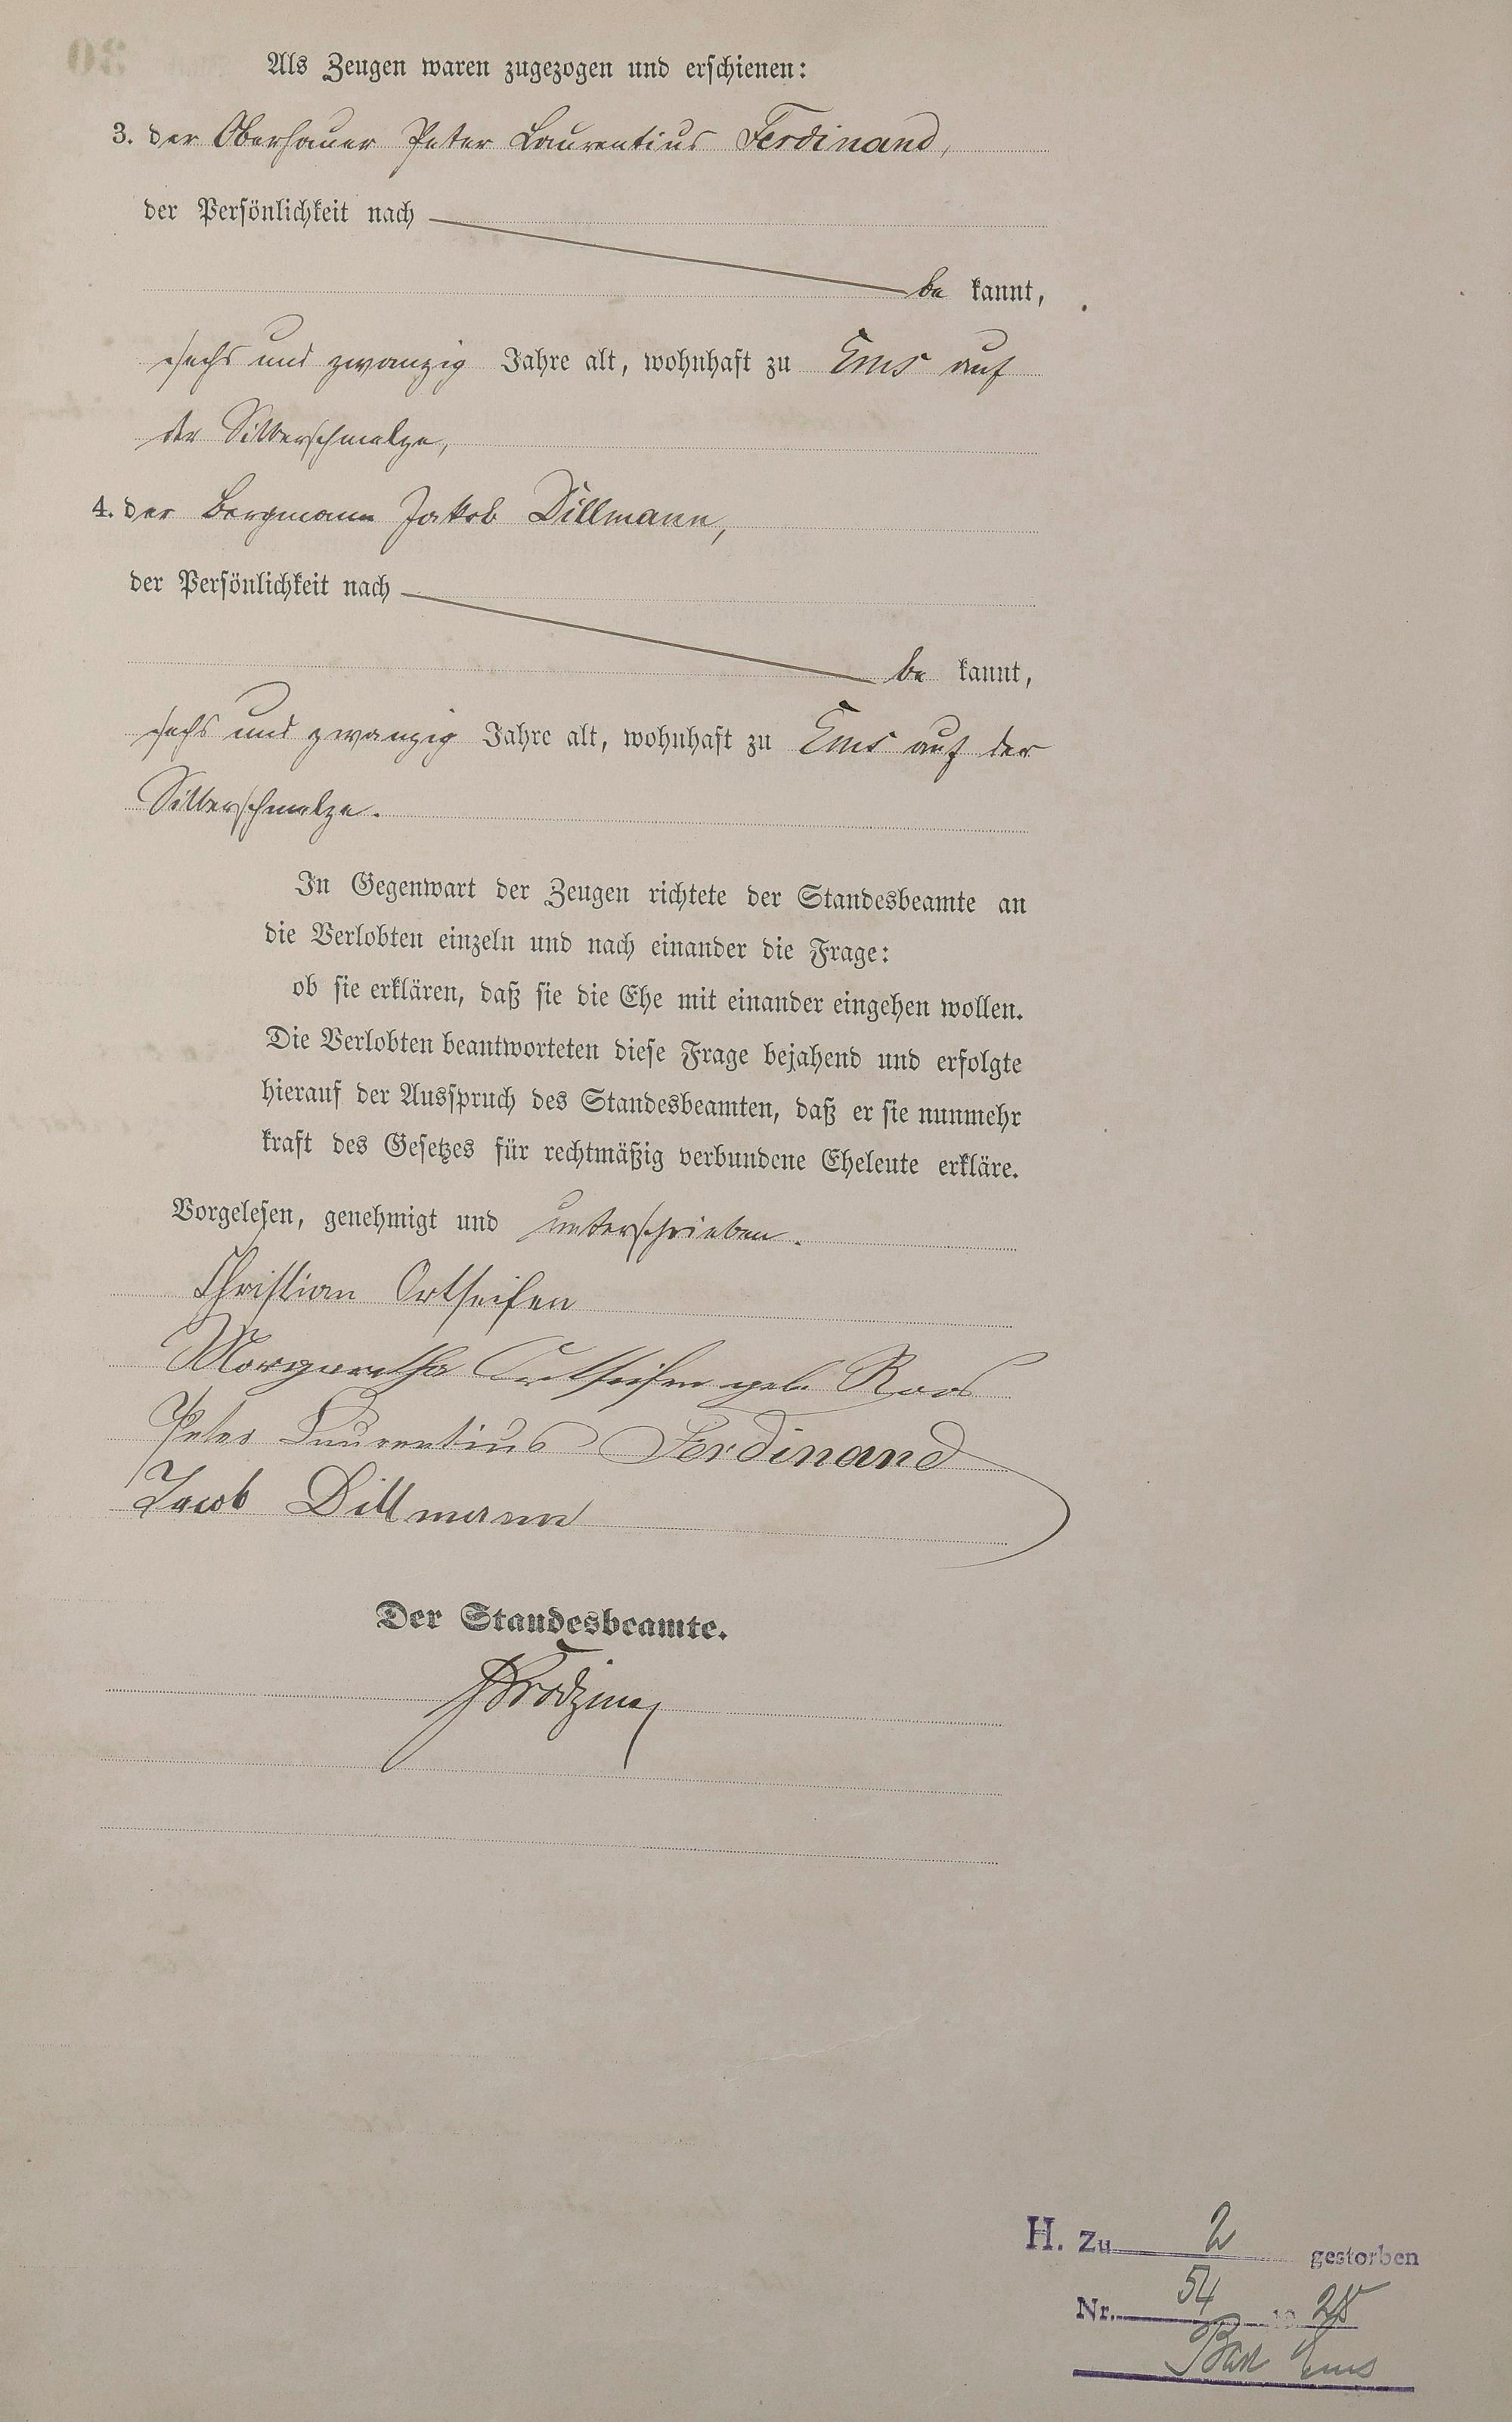 Als Zeugen waren zugezogen und erschienen:
3. der Oberhauer Peter Laurentius Ferdinand,
der Persönlichkeit nach
be kannt,
sechs und zwanzig Jahre alt, wohnhaft zu Ems auf
der Silberschmelze,
4. der Bergmann Jakob Dillmann,
der Persönlichkeit nach
be kannt,
sechs und zwanzig Jahre alt, wohnhaft zu Ems auf der
Silberschmelze.
In Gegenwart der Zeugen richtete der Standesbeamte an
die Verlobten einzeln und nach einander die Frage:
ob sie erklären, daß sie die Ehe mit einander eingehen wollen.
Die Verlobten beantworteten diese Frage bejahend und erfolgte
hierauf der Ausspruch des Standesbeamten, daß er sie nunmehr
kraft des Gesetzes für rechtmäßig verbundene Eheleute erkläre.
Vorgelesen, genehmigt und unterschrieben.
Christian Ortseifen
Margaretha Ortseifen geb. Roos
Peter Laurentius Ferdinand
Jacob Dillmann
Der Standesbeamte.
H. Zu 2 gestorben
Nr. 54 19
Bad Ems